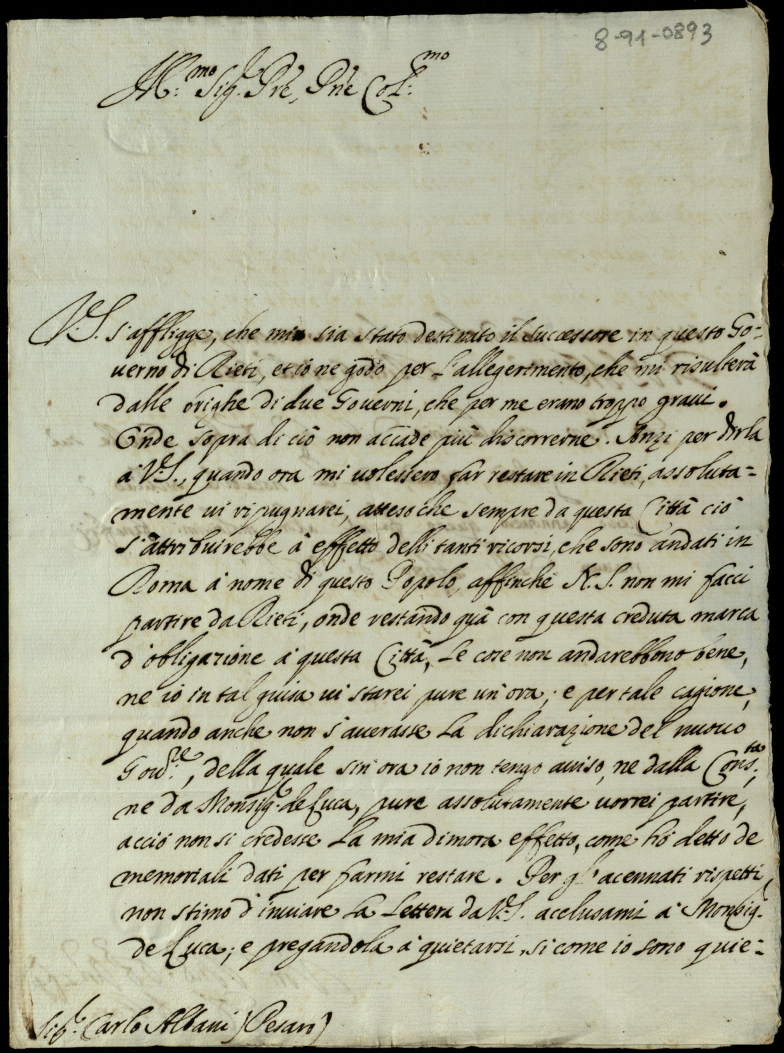 8-91-0893
Ill.mo Sig.r Pre, Pne Col.mo
V.S. s'affligge, che mi sia stato destinato il successore in questo Go=
verno di Rieti, et io ne godo per l'allegerimento, che mi risulterà
dalle brighe di due Governi, che per me erano troppo gravi.
Onde sopra di ciò non accade più discorrerne. Anzi per dirla
à V.S., quando ora mi volessero far restare in Rieti, assoluta=
mente vi ripugnarei, atteso che sempre da questa Città ciò
s'attribuirebbe à effetto delli tanti ricorsi, che sono andati in
Roma à nome di questo Popolo, affinche N.S. non mi facci
partire da Rieti, onde restando quà con questa creduta marca
d'obligazione à questa Città, le cose non andarebbono bene,
ne io in tal guisa vi starei pure un'ora; e per tale cagione,
quando anche non s'averasse la dichiarazione del nuovo
Gov.re, della quale sin'ora io non tengo aviso, ne dalla Cons.ta,
ne da Monsig.r de Luca, pure assolutamente vorrei partire,
acciò non si credesse la mia dimora effetto, come hò detto de
memoriali dati per farmi restare. Per gl'acennati rispetti
non stimo d'inviare la lettera da V.S. acclusami à Monsig.r
de Luca; e pregandola à quietarsi, si come io sono quie=
Sig.r Carlo Albani (Pesaro)